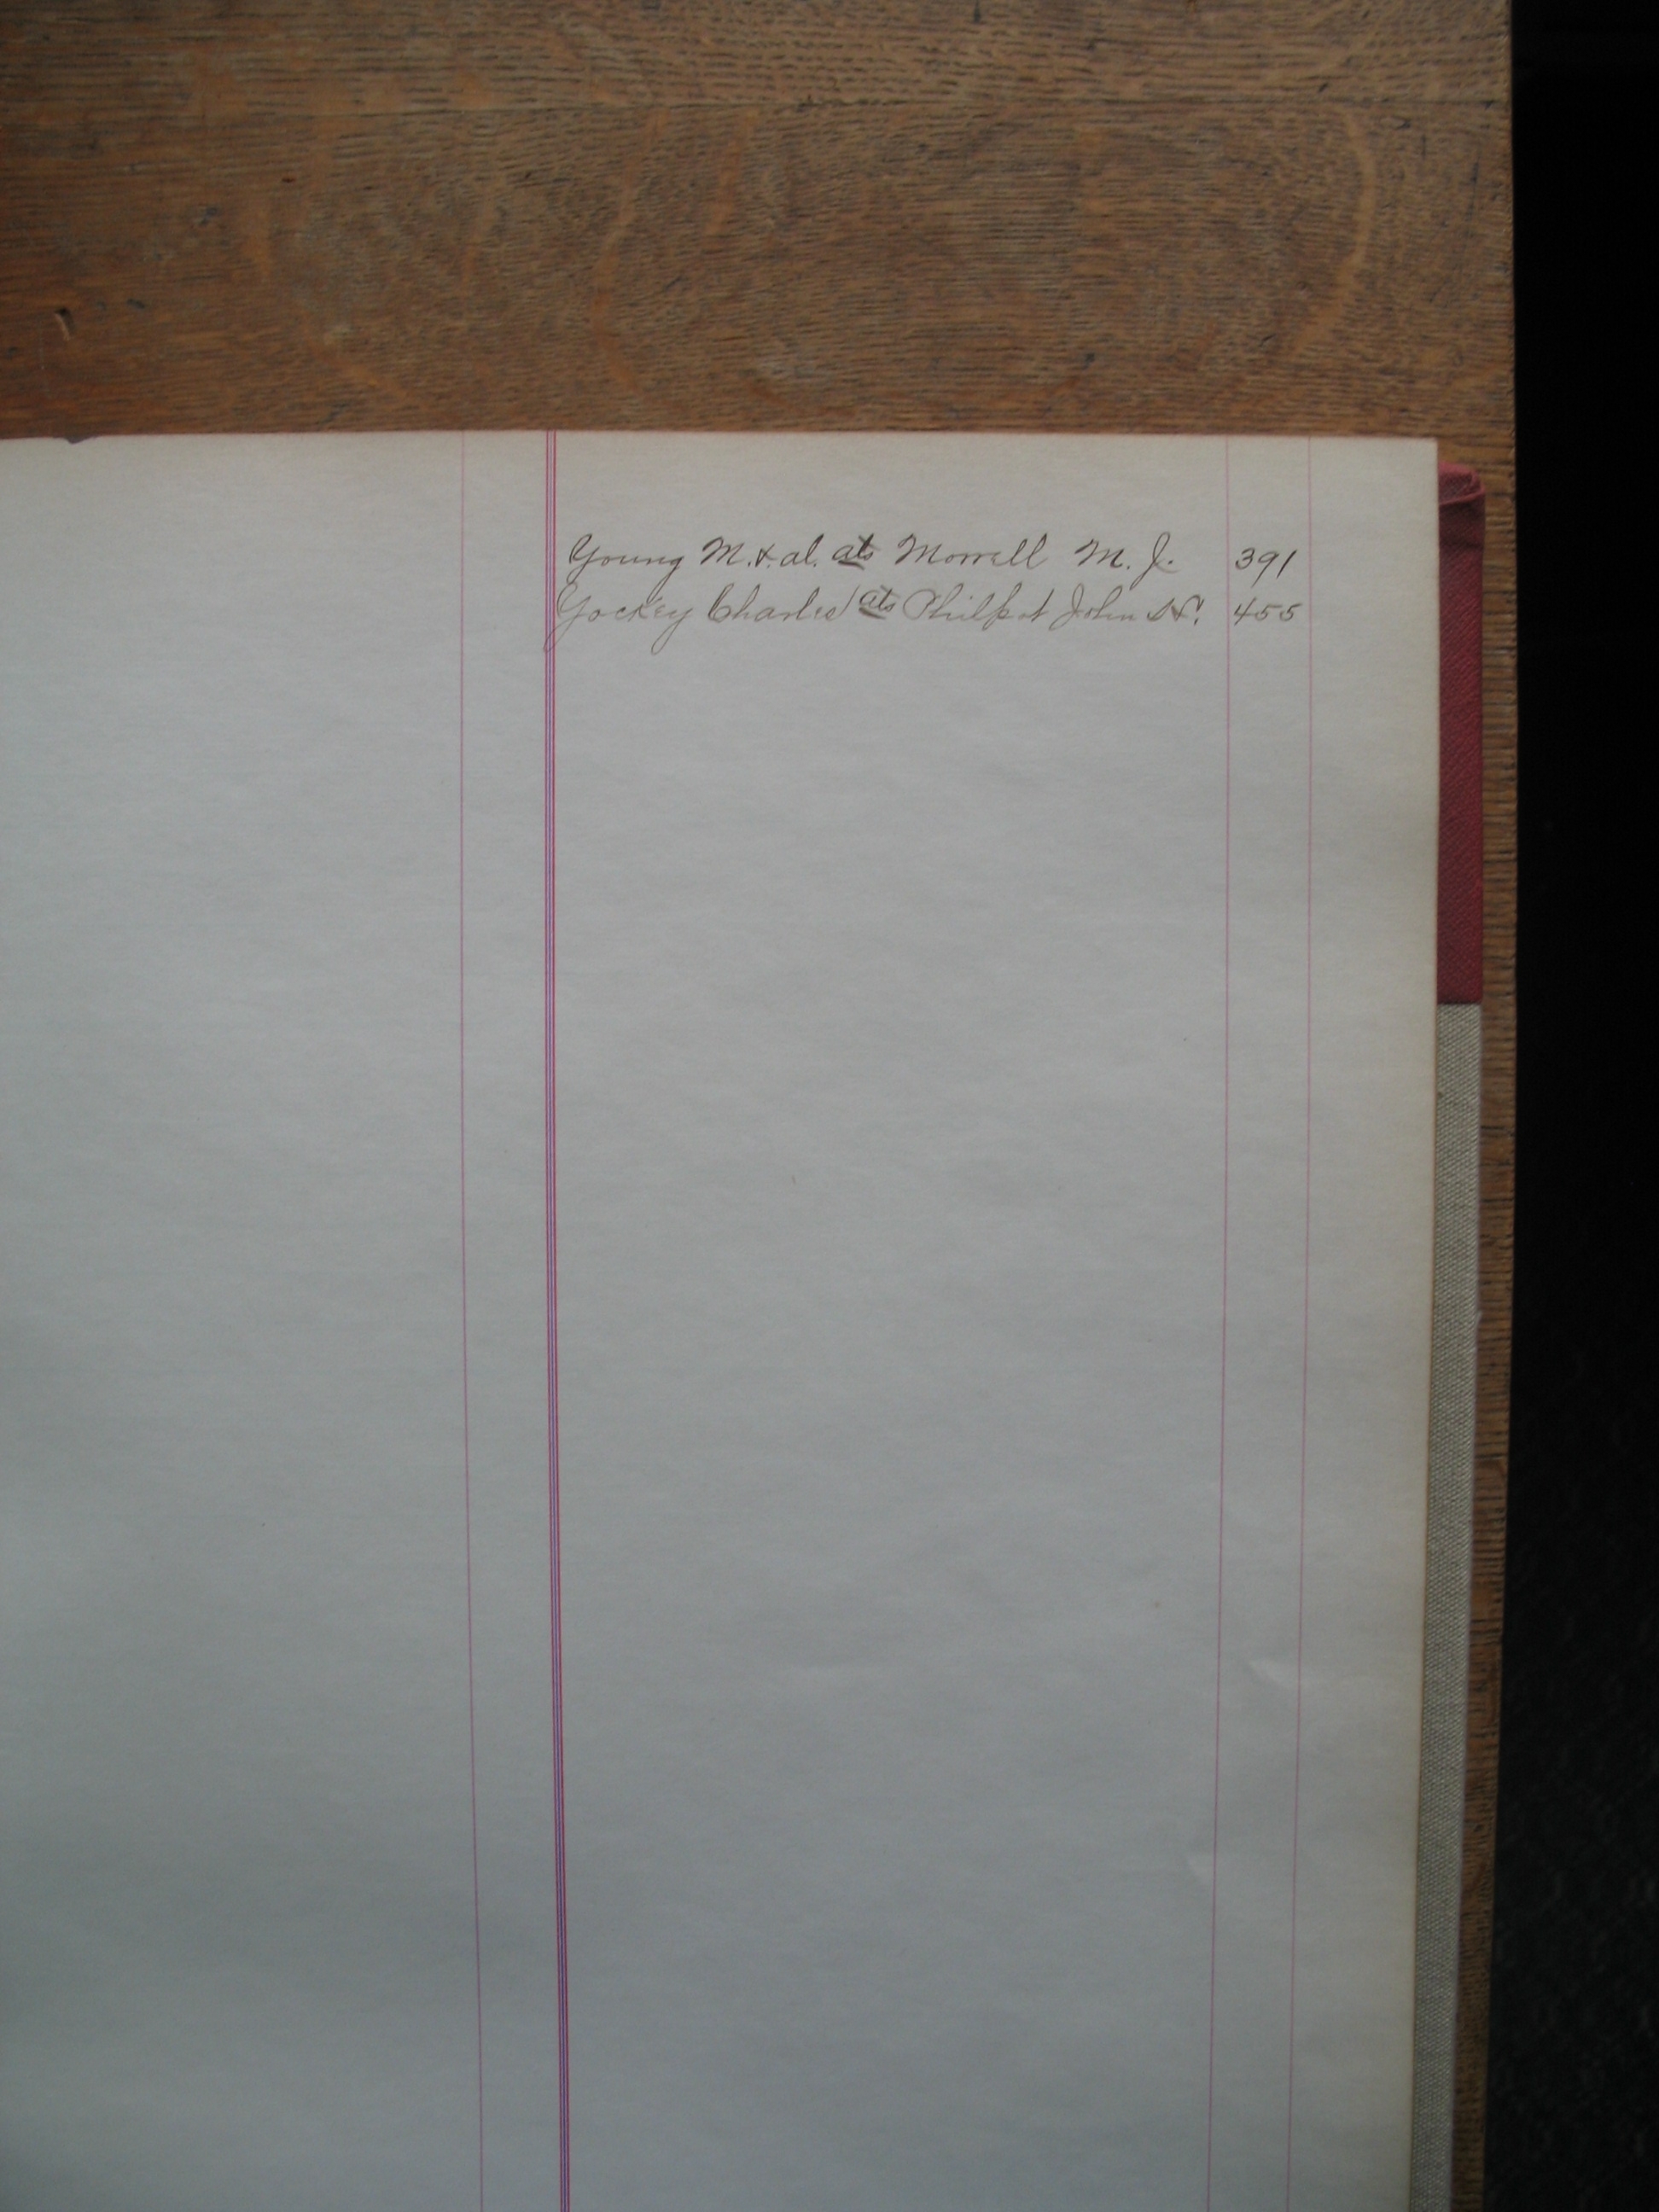 Young M. & al. ats Morrell M. J. 391
Yockey Charles ats Philpot John 455